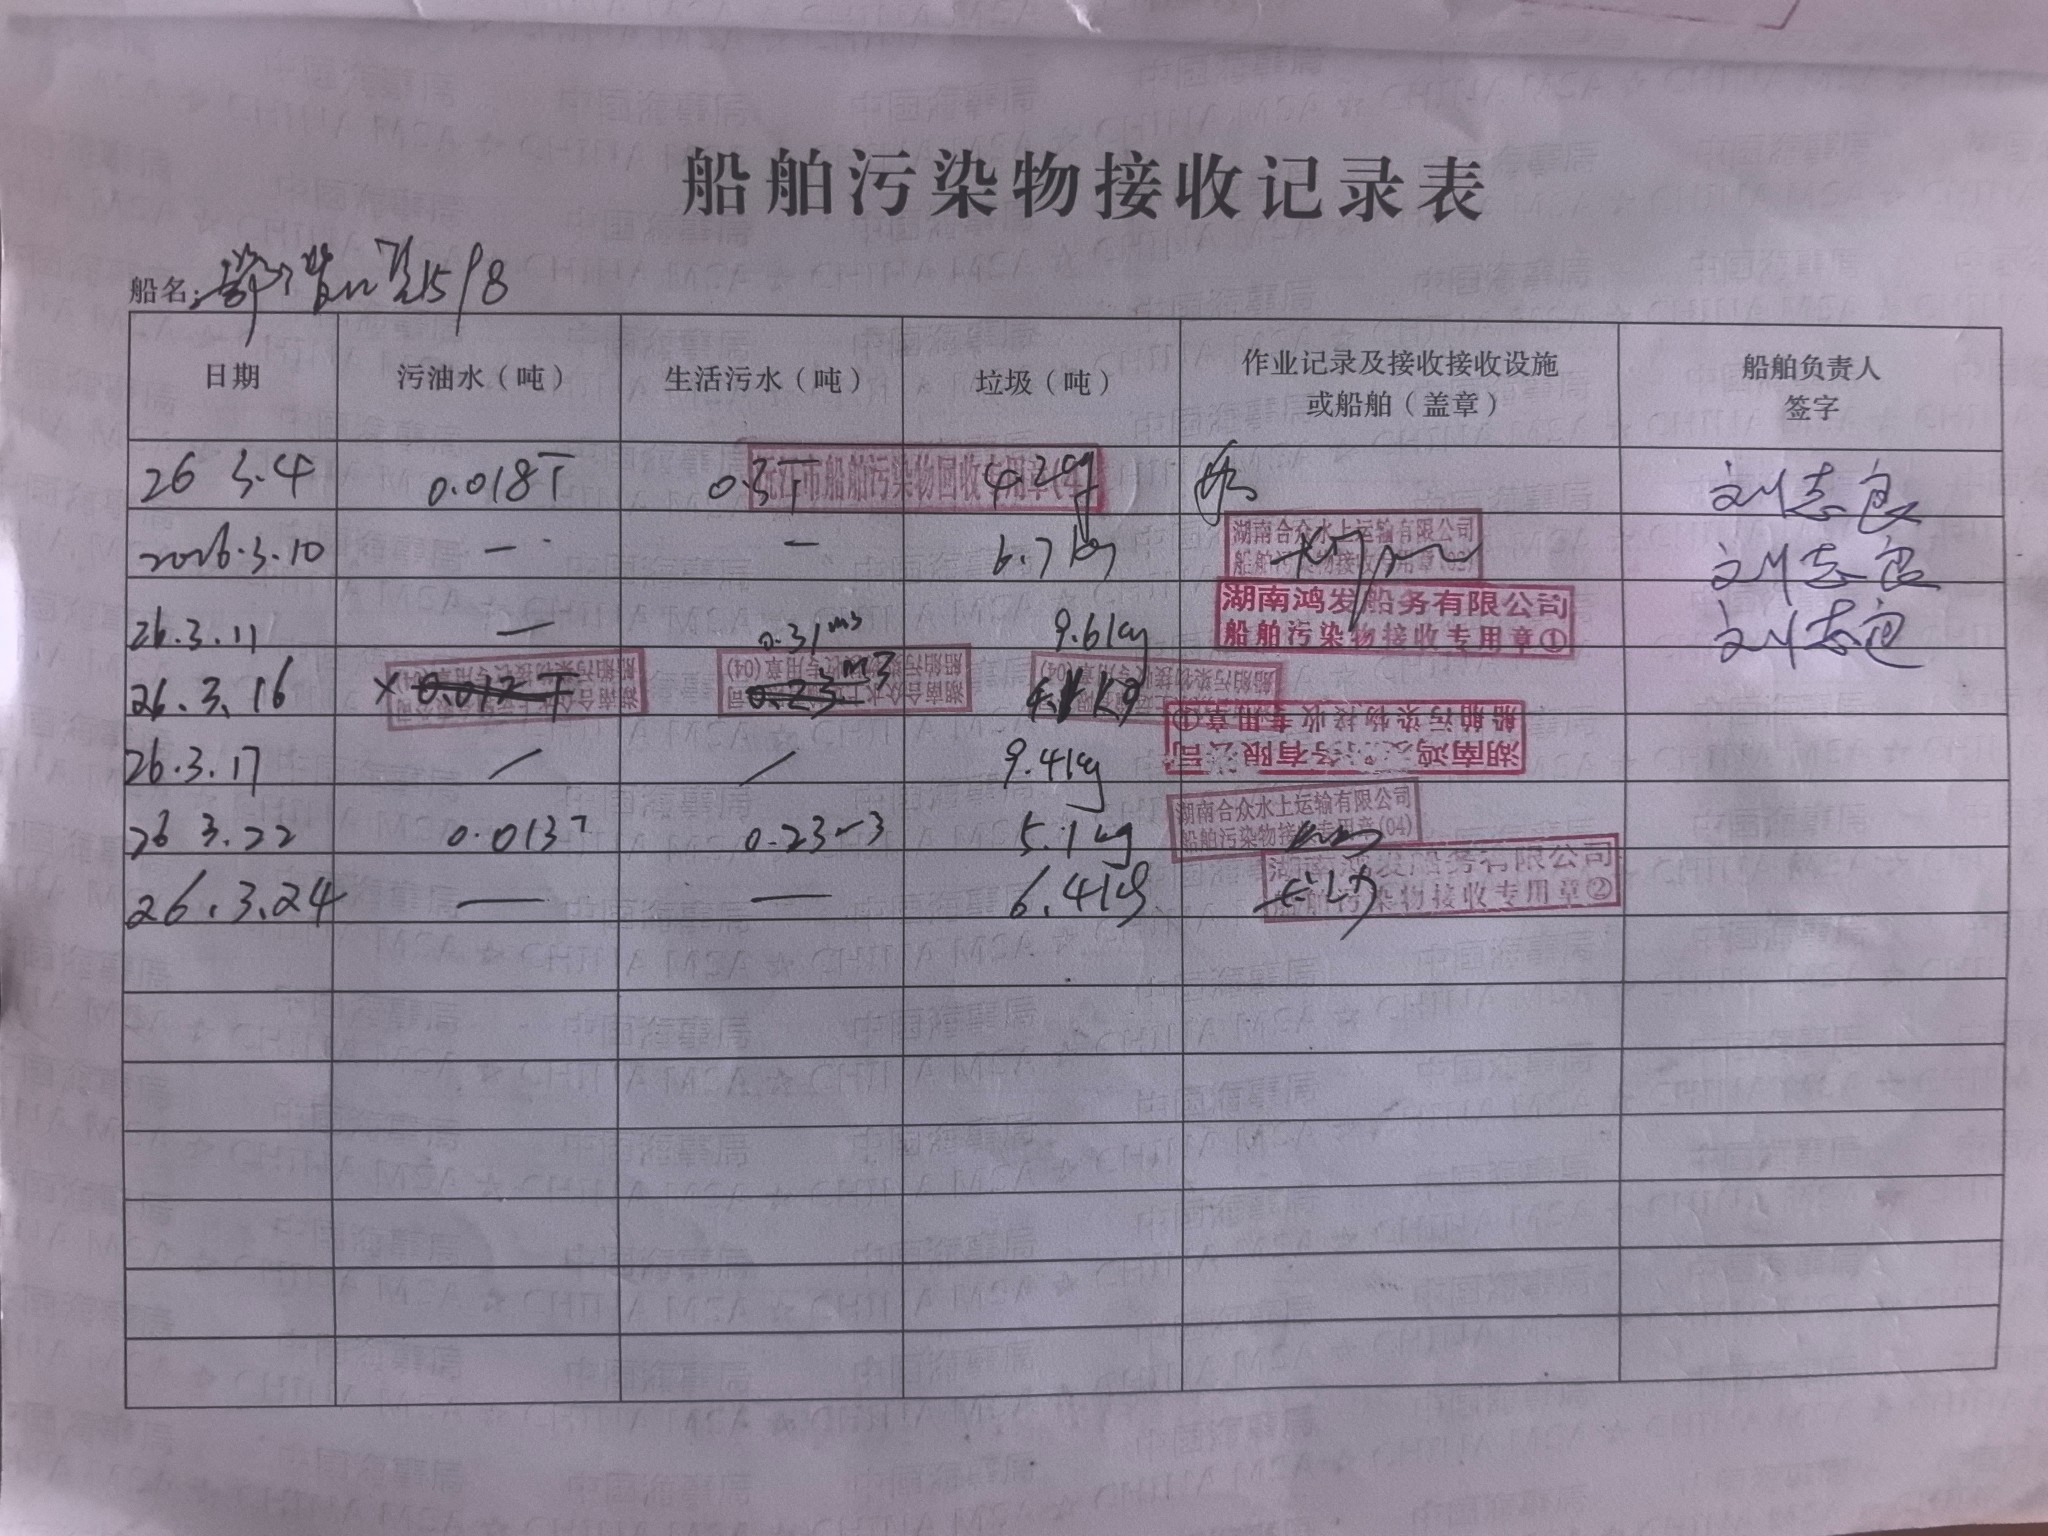 船舶污染物接收记录表
船名: 1518
日期 污油水（吨） 生活污水（吨） 垃圾（吨） 作业记录及接收接收设施或船舶（盖章） 船舶负责人签字
26 3.4 0.018T 0.3T 4.2kg 刘志良
沅江市船舶污染物回收专用章
2026.3.10 — — 6.7kg 刘志良
湖南合众水上运输有限公司
船舶污染物接收专用章(03)
26.3.11 — 0.31m3 9.6kg 刘志良
湖南鸿发船务有限公司
船舶污染物接收专用章①
26.3.16 × 0.012T 0.23m3 kg
湖南合众水上运输有限公司
船舶污染物接收专用章(04)
湖南合众水上运输有限公司
船舶污染物接收专用章(04)
船舶污染物接收专用章(04)
26.3.17 / / 9.4kg
湖南鸿发船务有限公司
船舶污染物接收专用章①
26 3.22 0.013T 0.23m3 5.1kg
湖南合众水上运输有限公司
船舶污染物接收专用章(04)
26.3.24 — — 6.4kg
湖南鸿发船务有限公司
船舶污染物接收专用章②